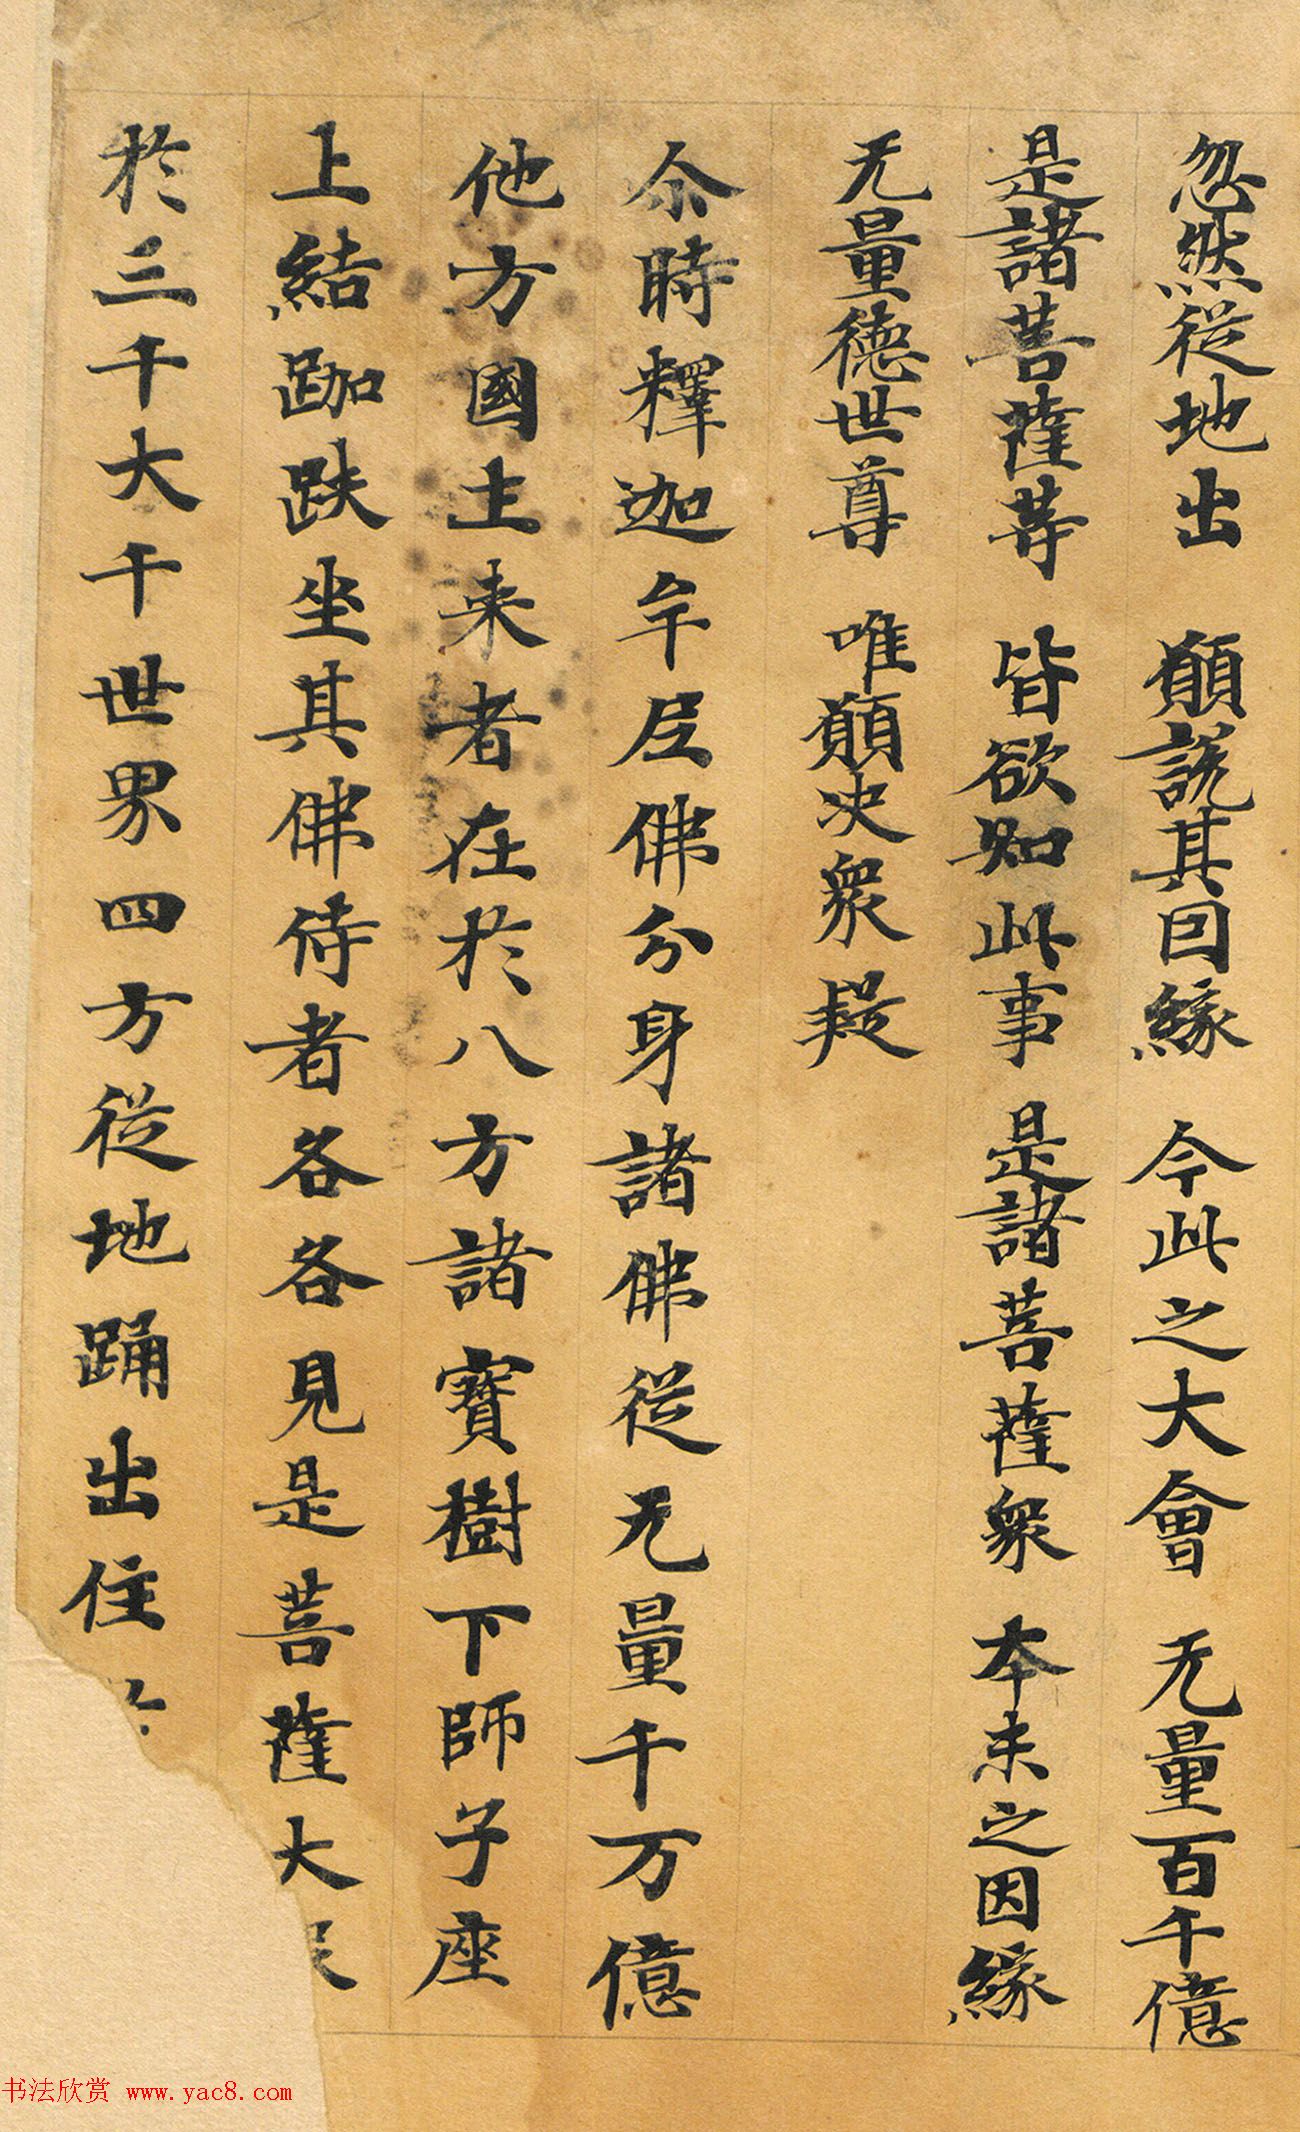 忽然從地出 願說其因緣 今此之大會 无量百千億
是諸菩薩等 皆欲知此事 是諸菩薩衆 本末之因緣
无量德世尊 唯願决衆疑
尒時釋迦牟尼佛分身諸佛從无量千万億
他方國土来者在於八方諸寶樹下師子座
上結跏趺坐其佛侍者各各見是菩薩大
於三千大千世界四方從地踊出住
书法欣赏 www.yac8.com